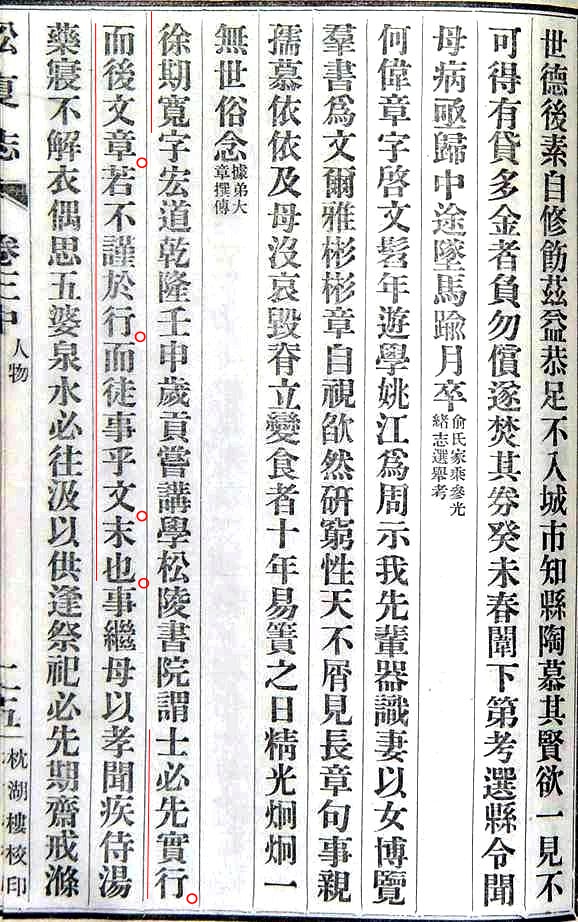 世德後素自修飭茲益恭足不入城市知縣陶慕其賢欲一見不
可得有貸多金者負勿償遂焚其劵癸未春闈下第考選縣令聞
母病亟歸中途墜馬踰月卒俞氏家乘參光緒志選舉考
何偉章字啓文髫年遊學姚江爲周示我先輩器識妻以女博覽
羣書爲文爾雅彬彬章自視欿然硏窮性天不屑見長章句事親
孺慕依依及母沒哀毀脊立變食者十年易簀之日精光烱烱一
無世俗念據弟大章撰傳
徐期寬字宏道乾隆壬申歲貢嘗講學松陵書院謂士必先實行
而後文章若不謹於行而徒事乎文末也事繼母以孝聞疾侍湯
藥寢不解衣偶思五婆泉水必往汲以供逢祭祀必先期齋戒滌
松夏志 卷三中 人物 二五 枕湖樓校印